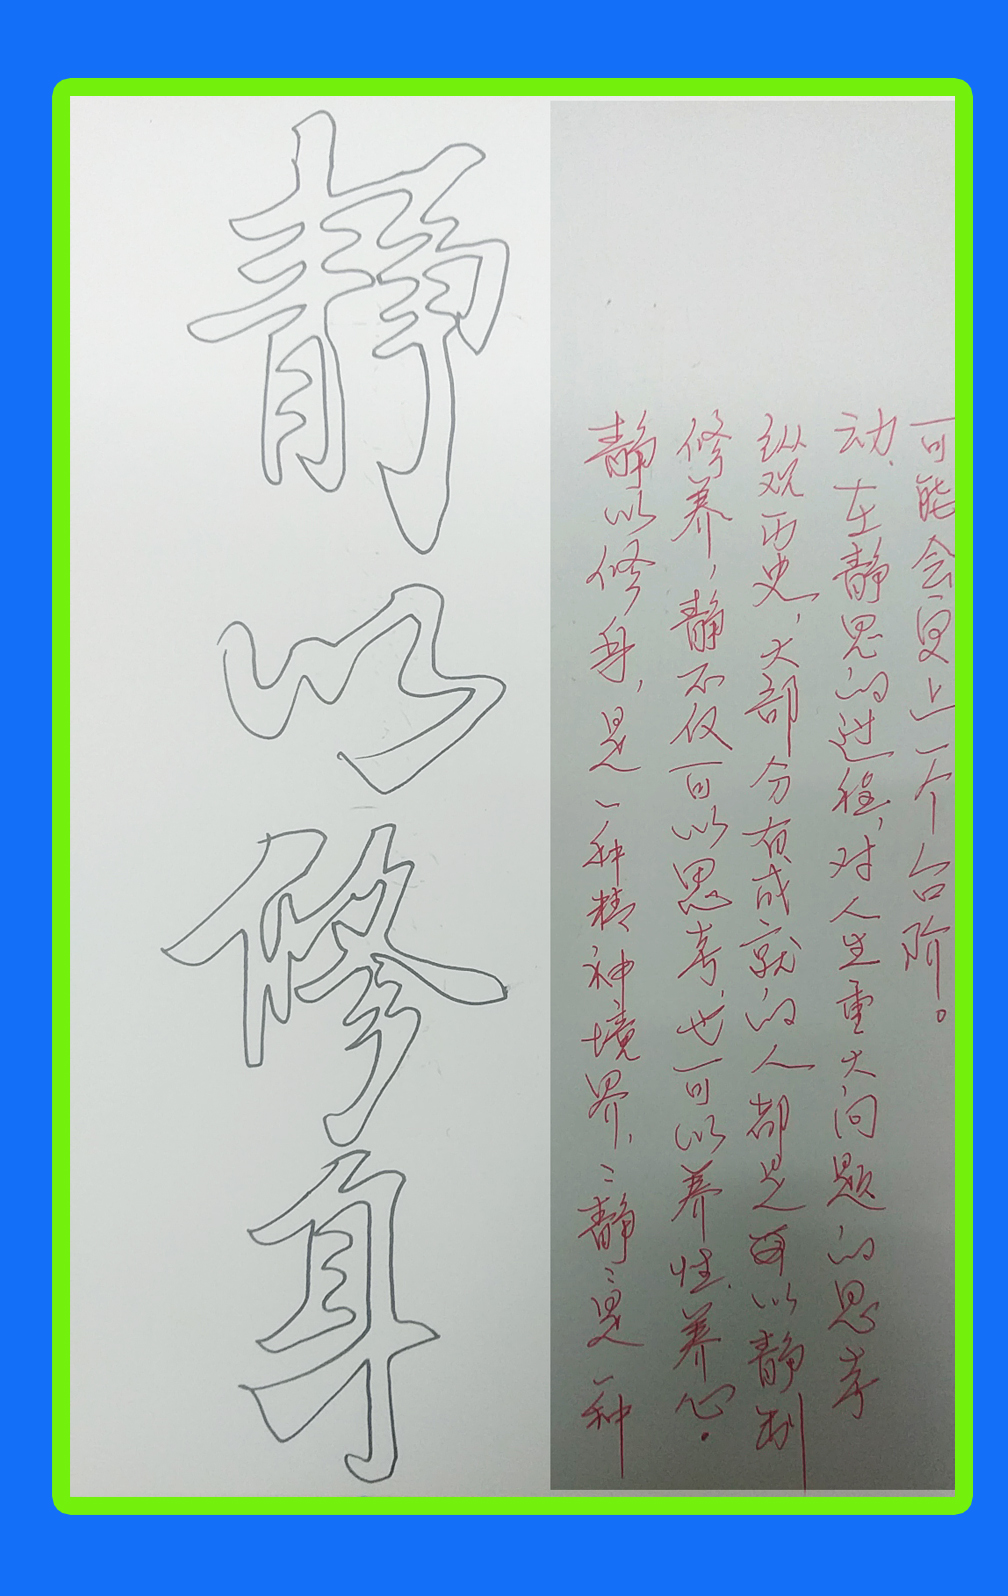 静以修身
静以修身，是一种精神境界，“静”是一种
修养，静不仅可以思考，也可以养性、养心。
纵观历史，大部分有成就的人都是以静制
动，在静思的过程，对人生重大问题的思考
可能会更上一个台阶。